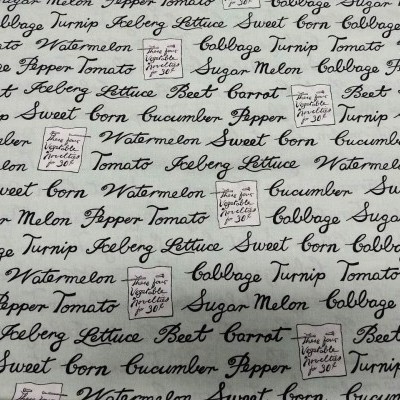 Sugar Melon Cucumber Sweet
Cabbage Turnip Iceberg Lettuce Sweet Corn Cabbage
Watermelon These four Vegetable Novelties for 30¢ Cabbage Turnip Tomato
Pepper Tomato Sugar Melon Cabbage
Iceberg Lettuce Beet Carrot These four Vegetable Novelties for 30¢ Beet
Sweet Corn Cucumber Pepper Turnip
These four Vegetable Novelties for 30¢ Watermelon Sweet Corn Cucumber
Tomato Iceberg Lettuce Cabbage
Sweet Corn Watermelon These four Vegetable Novelties for 30¢ Cucumber
Melon Pepper Tomato Cabbage Sugar
Turnip Iceberg Lettuce Sweet Corn Cabbage
Watermelon These four Vegetable Novelties for 30¢ Cabbage Turnip Tomato
Pepper Tomato Sugar Melon Cabbage
Iceberg Lettuce Beet Carrot These four Vegetable Novelties for 30¢ Beet
Sweet Corn Cucumber Pepper Turnip
Watermelon Sweet Corn Cucumber